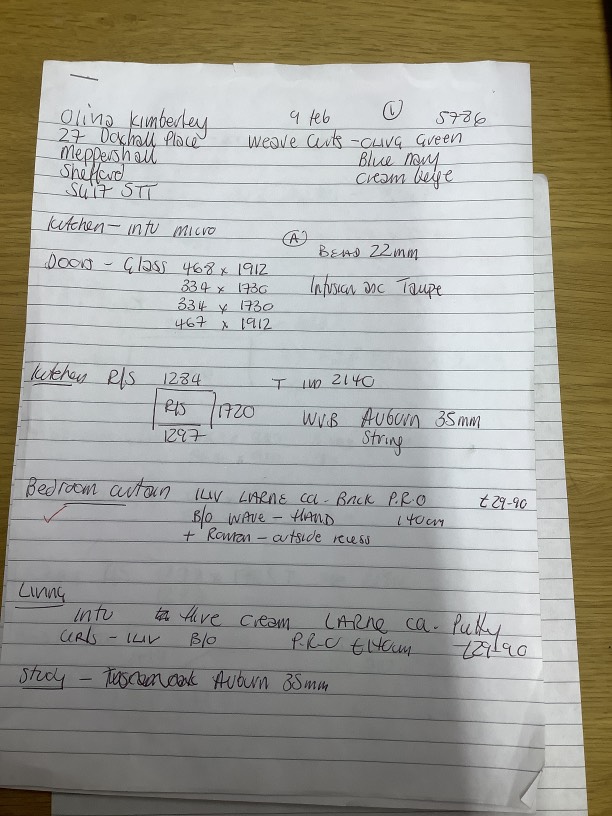 Olina Kimberley 9 Feb L 5786
27 Place Weave Curts - Green
Meppershall Blue navy
Shefford Cream beige
SG17 5TT
Kitchen - intu micro A
BEAD 22mm
Doors - Glass 468 x 1912
334 x 1730 Infusion asc Taupe
334 x 1730
467 x 1912
Kitchen R/S 1284 T up 2140
R/S 1720 WVB Auburn 35mm
1297 String
Bedroom curtain ILIV LARNE ca. Brick P.R.O £29-90
B/O WAVE - HAND 140cm
+ Roman - outside recess
Living
intu Hive Cream LARNE ca. Putty
- ILIV B/O P.R.O £140cm £29-90
Study - Auburn 35mm